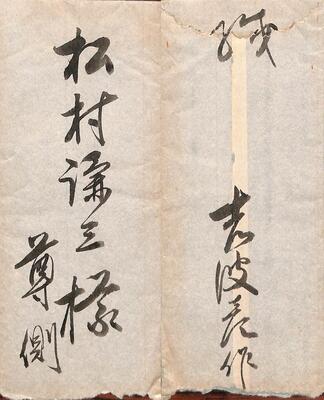 松村謙三様
尊側
緘
吉波彦作